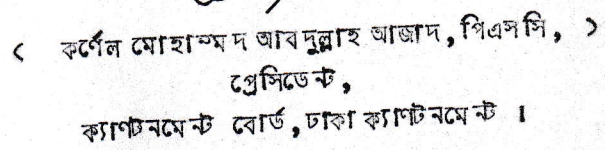 ( কর্ণেল মোহাম্মদ আবদুল্লাহ আজাদ, পিএসসি, )
প্রেসিডেন্ট,
ক্যাণ্টনমেন্ট বোর্ড, ঢাকা ক্যাণ্টনমেন্ট ।